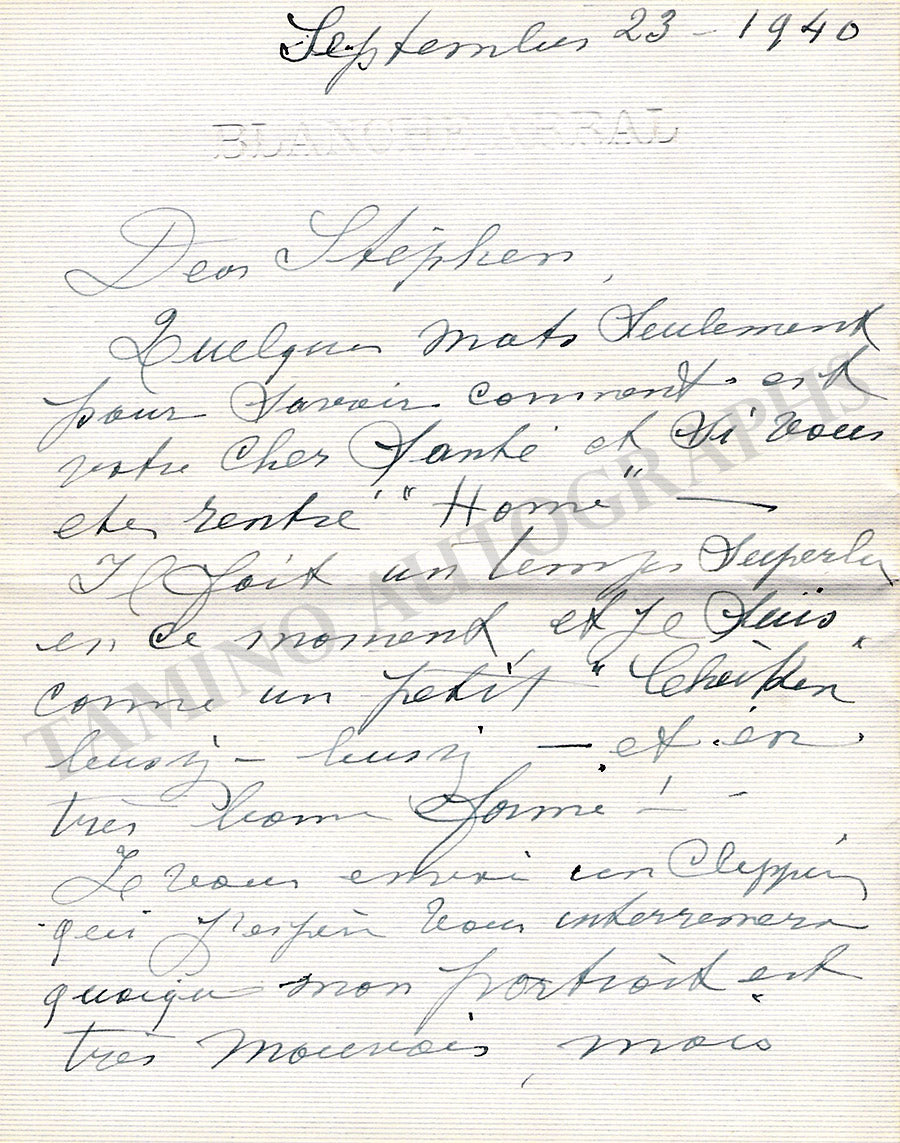 September 23 - 1940
BLANCHE ARRAL
Dear Stéphen,
Quelques mots seulement
pour savoir comment est
votre cher santé et si vous
etes rentré "Home" —
Il fait un temps superbe
en ce moment et je suis
comme un petit "Chicken"
busy - busy — et en
très bonne forme ! -
Je vous envoi un Clipping
qui j'espère vous
quoique mon portrait est
très mauvais, mais
TAMINO AUTOGRAPHS